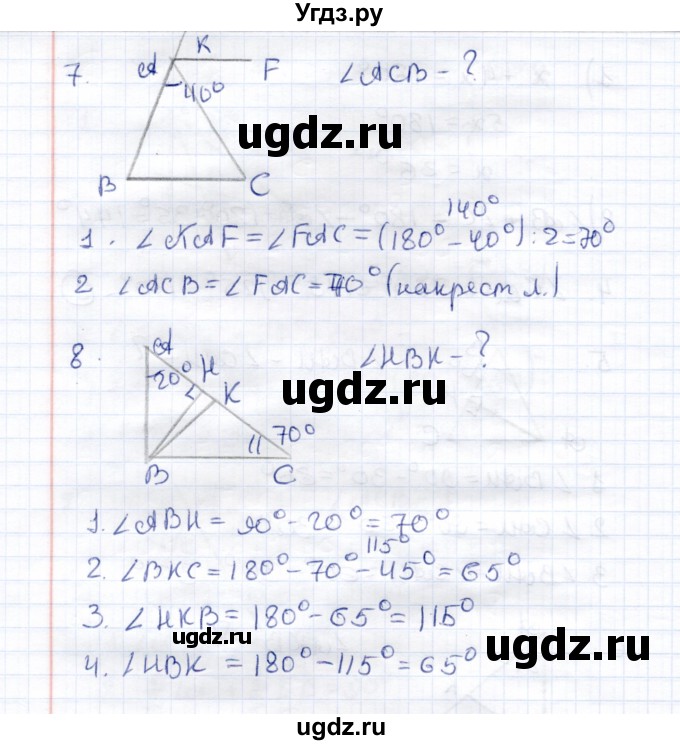 Угдз.ру
7. A K F ∠ACB - ?
40°
ugdz.ru
B C
140°
1. ∠KAF = ∠FAC = (180° - 40°) : 2 = 70°
2 ∠ACB = ∠FAC = 70° (накрест л.)
ugdz.ru
8. A ∠HBK - ?
20° H
K
ugdz.ru
70°
B C
1. ∠ABH = 90° - 20° = 70°
115°
2. ∠BKC = 180° - 70° - 45° = 65°
3. ∠HKB = 180° - 65° = 115°
ugdz.ru
4. ∠HBK = 180° - 115° = 65°
ugdz.ru
ugdz.ru